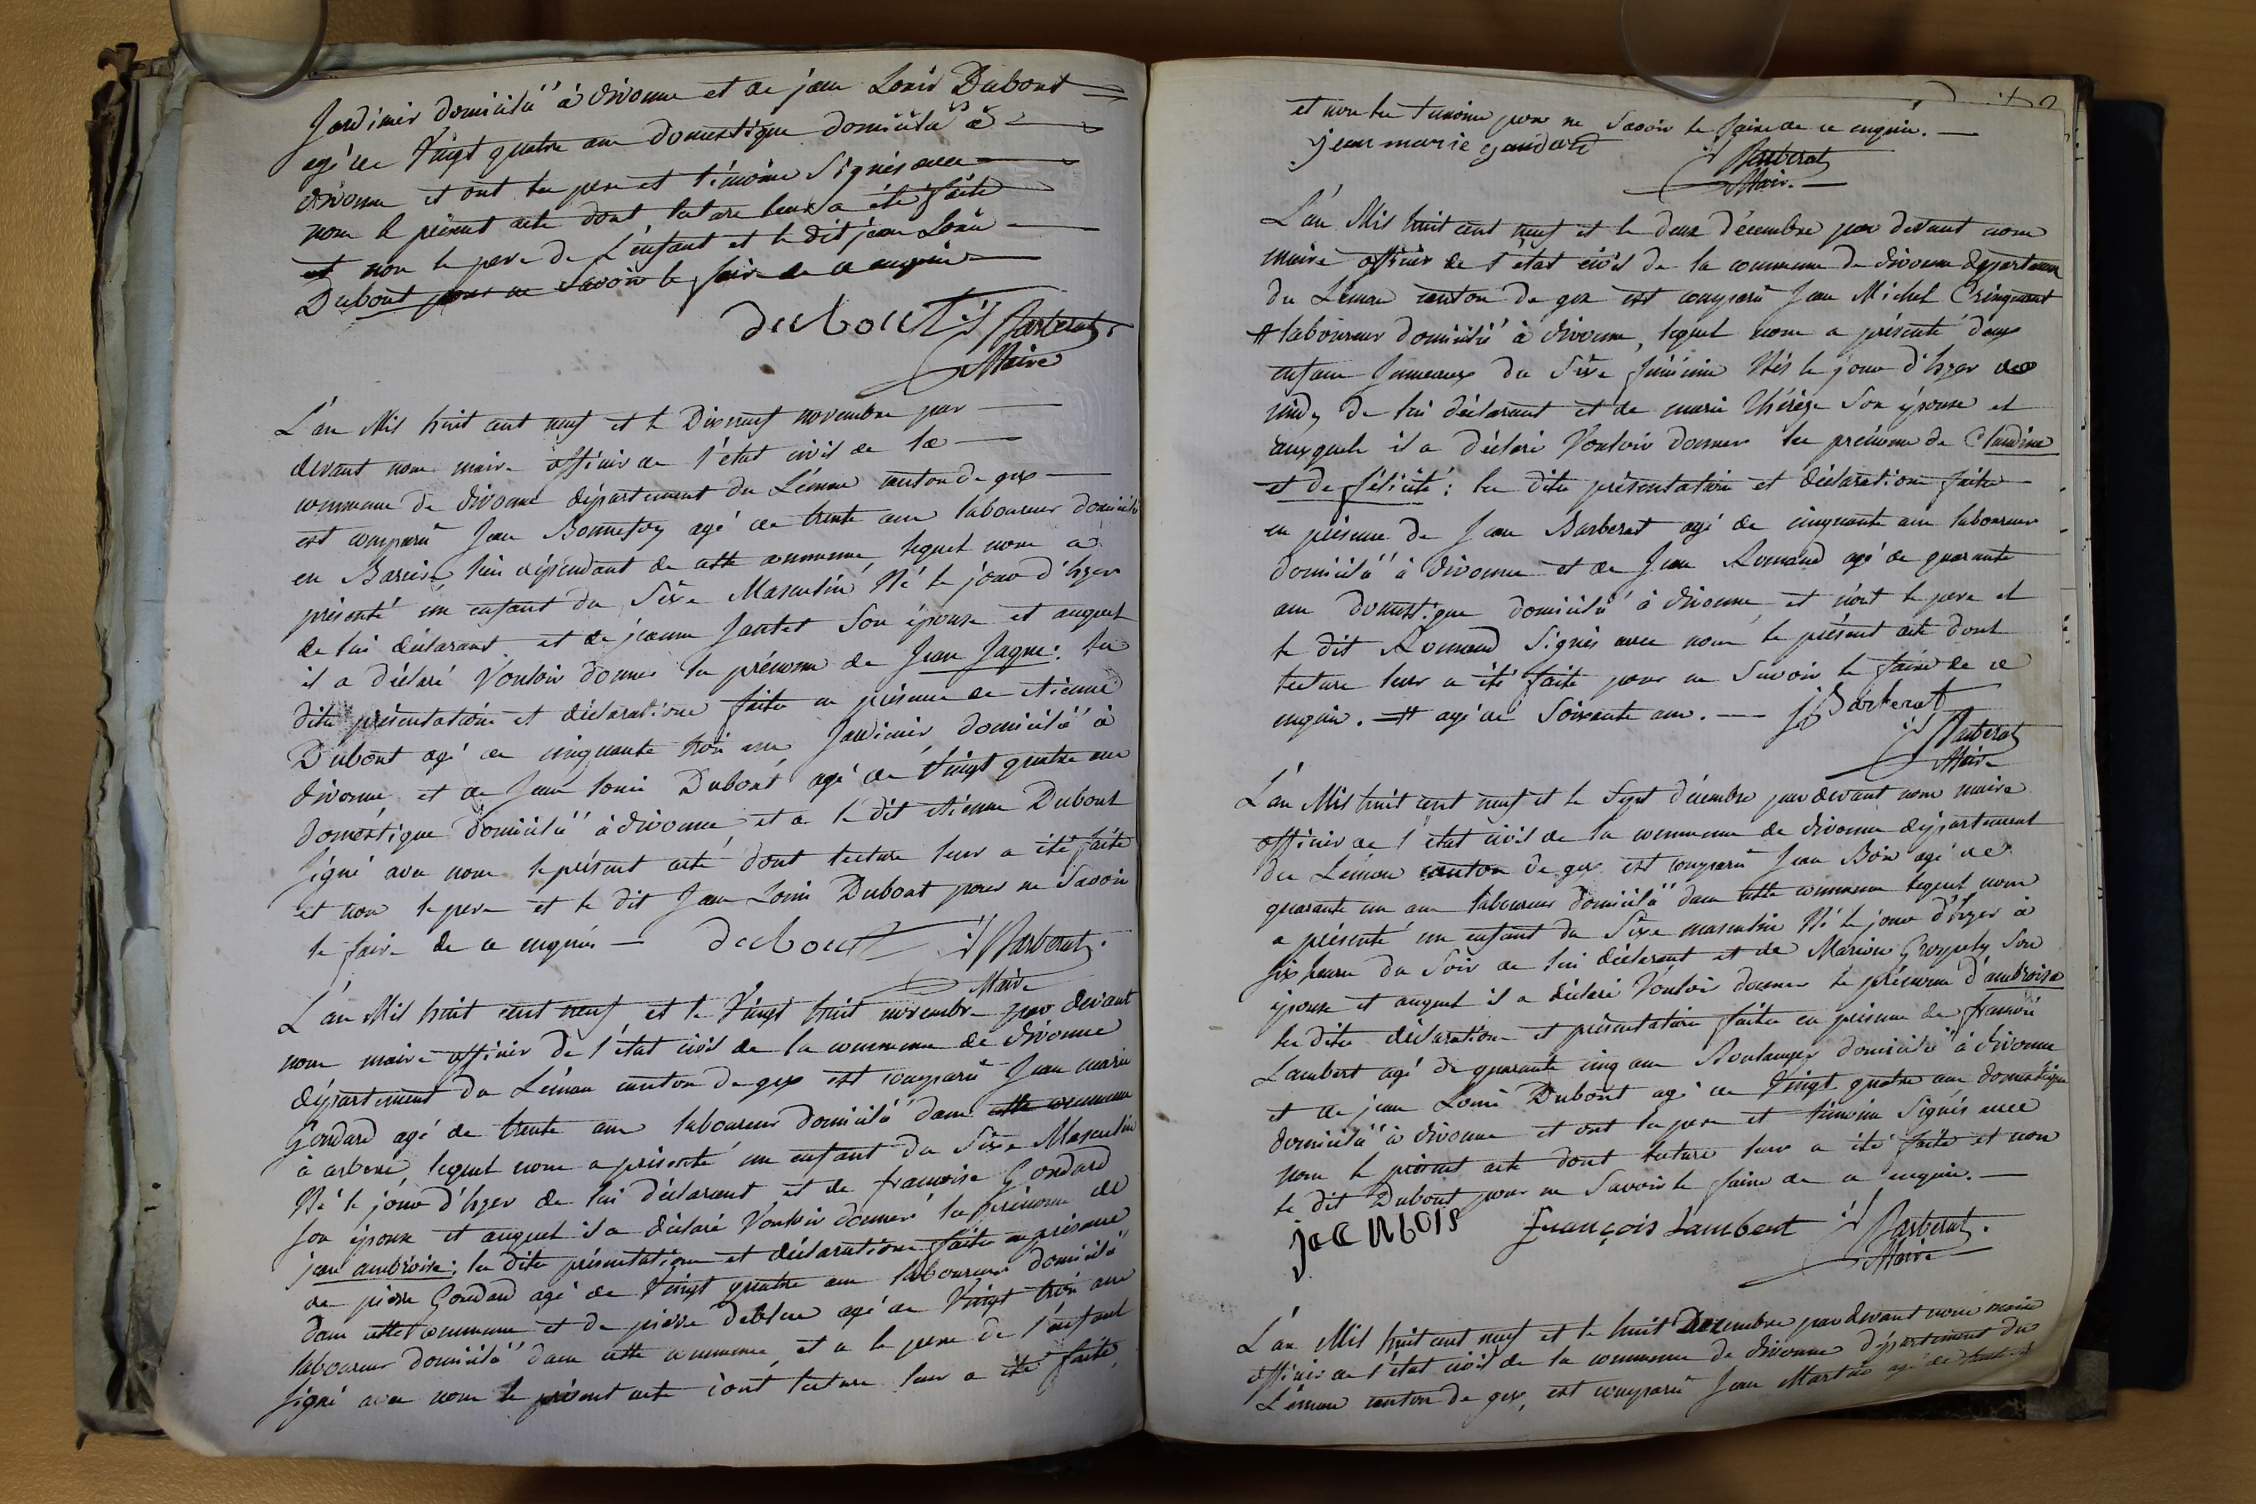 Jardinier domicilié à divonne et de jean Louis Dubout
agé de Vingt quatre ans domestique domicilié à
divonne et ont les pere et témoins Signés avec
nous le présent acte dont lecture leur a été faite
et non le pere de L'enfant et le dit jean Louis
Dubout pour ne Savoir le faire de ce enquis
dubout Barberat
Maire
L'an Mil huit cent neuf et le Dix neuf novembre par
devant nous maire officier de l'état civil de la
commune de divonne département du Léman canton de gex
est comparu Jean Bonnefoy agé de trente ans laboureur domicilié
en lieu dépendant de cette commune, lequel nous a
présenté un enfant du Sexe Masculin Né le jour d'hyer
de lui déclarant et de jeanne Jantet Son épouse et auquel
il a déclaré Vouloir donner les prénoms de Jean Jaque: les
dites présentations et déclarations faites en présence de etienne
Dubout agé de cinquante trois ans Jardinier domicilié à
divonne et de Jean Louis Dubout agé de Vingt quatre ans
domestique domicilié à divonne et a le dit etienne Dubout
Signé avec nous le présent acte dont lecture leur a été faite
et non le pere et le dit Jean Louis Dubout pour ne Savoir
le faire de ce enquis — dubout Barberat
Maire
L'an Mil huit cent neuf et le Vingt huit novembre par devant
nous maire officier de l'état civil de la commune de divonne
département du Léman canton de gex est comparu Jean marie
Goudard agé de trente ans laboureur domicilié dans cette commune
à arbere, lequel nous a présenté un enfant du Sexe Masculin
Né le jour d'hyer de lui déclarant et de francoise Goudard
Son épouse et auquel il a déclaré Vouloir donner les prénoms de
jean ambroise; les dites présentations et déclarations faites en présence
de pierre Goudard agé de Vingt quatre ans laboureur domicilié
dans cette commune et de pierre agé de Vingt trois ans
laboureur domicilié dans cette commune, et a le pere de l'enfant
Signé avec nous le présent acte dont lecture leur a été faite
et non les temoins pour ne Savoir le faire de ce enquis. —
jean marie goudard Barberat
Maire
L'an Mil huit cent neuf et le deux décembre par devant nous
maire officier de l'état civil de la commune de divonne département
du Léman canton de gex est comparu Jean Michel
# laboureur domicilié à divonne, lequel nous a présenté deux
enfans Jumeaux du Sexe féminin Nés le jour d'hyer de
midy de lui déclarant et de marie Thérèse Son épouse et
auxquels il a déclaré Vouloir donner les prénoms de Claudine
et de félicité: les dites présentations et déclarations faites
en présence de Jean Barberat agé de cinquante ans laboureur
domicilié à divonne et de Jean Romand agé de quarante
ans domestique domicilié à divonne et n'ont le pere et
le dit Romand Signés avec nous le présent acte dont
lecture leur a été faite pour ne Savoir le faire de ce
enquis. # agé de Soixante ans. — J Barberat
Barberat
Maire
L'an Mil huit cent neuf et le Sept décembre par devant nous maire
officier de l'état civil de la commune de divonne département
du Léman canton de gex est comparu Jean Bois agé de
quarante un ans laboureur domicilié dans cette commune lequel nous
a présenté un enfant du Sexe masculin Né le jour d'hyer à
six heures du Soir de lui déclarant et de Marie Son
épouse et auquel il a déclaré Vouloir donner le prénom d'ambroise
les dites déclarations et présentations faites en présence de francois
Lambert agé de quarante cinq ans Boulanger domicilié à divonne
et de jean Louis Dubout agé de Vingt quatre ans domestique
domicilié à divonne et ont les pere et témoin Signés avec
nous le présent acte dont lecture leur a été faite et non
le dit Dubout pour ne Savoir le faire de ce enquis. —
françois Lambert Barberat
Maire
L'an Mil huit cent neuf et le huit Decembre par devant nous maire
officier de l'état civil de la commune de divonne département du
Léman canton de gex, est comparu Jean Martin agé de